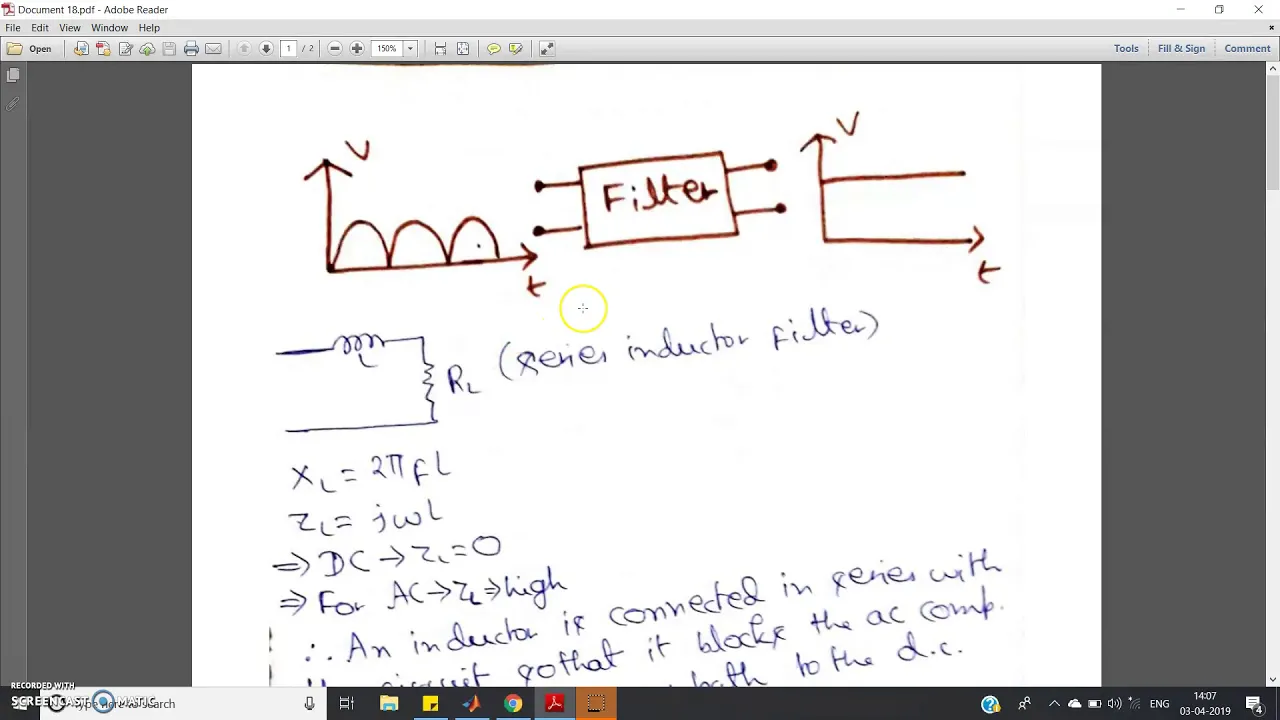 Document 18.pdf - Adobe Reader
File Edit View Window Help
Open 1 / 2 150% Tools Fill & Sign Comment
V
t
Filter
V
t
L
RL (series inductor filter)
XL = 2πfL
ZL = jωL
⇒ DC → ZL = 0
⇒ For AC → ZL ⇒ high
∴ An inductor is connected in series with
circuit so that it blocks the ac comp.
to the d.c.
RECORDED WITH
SCREENCAST MATIC
here search
ENG
14:07
03-04-2019